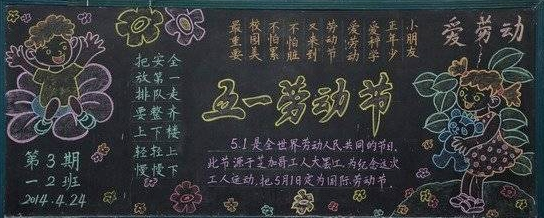 爱劳动
小朋友
正年少
爱科学
爱劳动
劳动节
又来到
不怕脏
不怕累
校园美
最重要
把安全
放第一
排队走
要整齐
上下楼
轻轻上
慢慢下
五一劳动节
5.1是全世界劳动人民共同的节日,
此节源于芝加哥工人大罢工,为纪念这次
工人运动,把5月1日定为国际劳动节。
第3期
一2班
2014.4.24